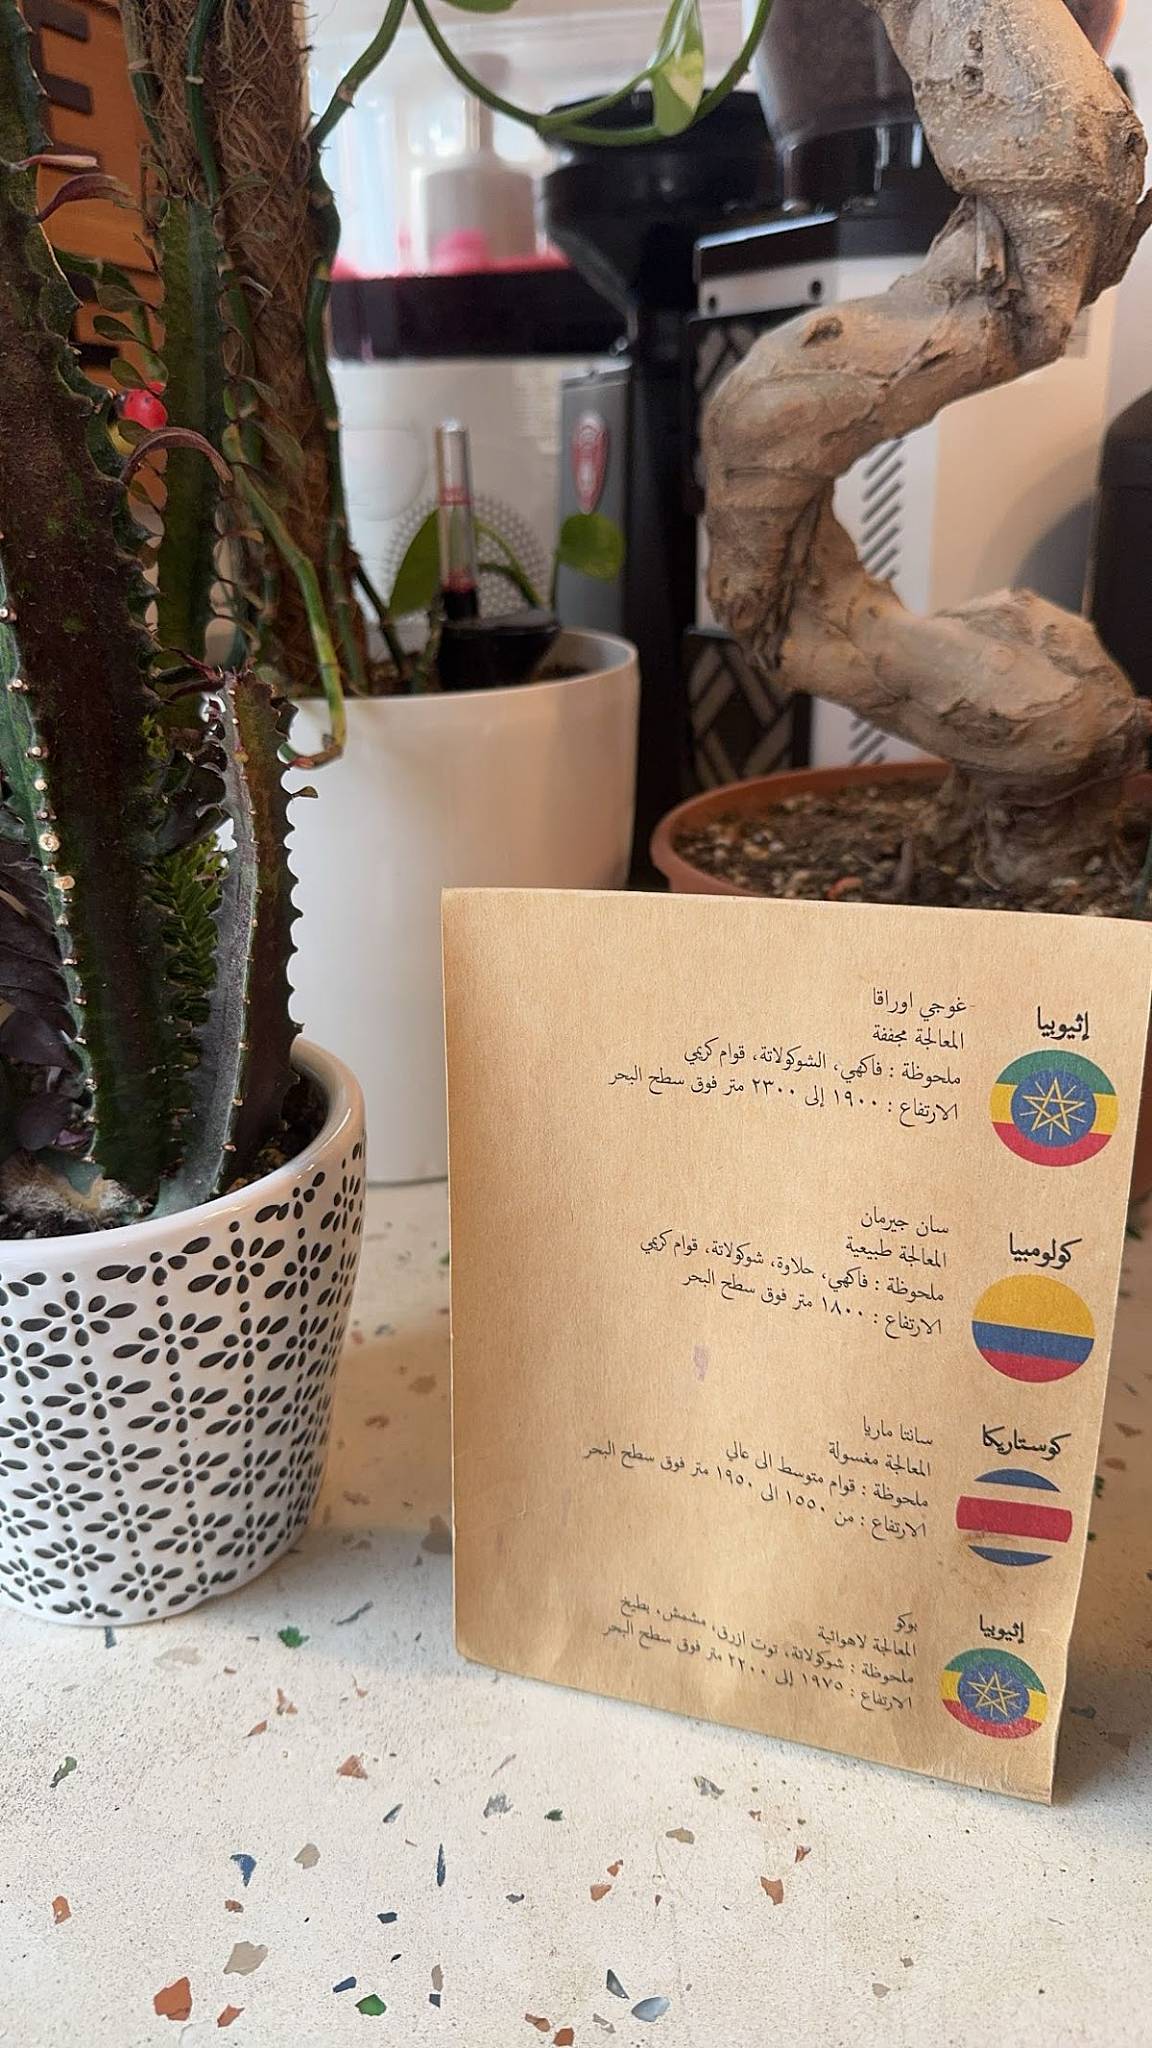 إثيوبيا
غوجي اوراقا
المعالجة مجففة
ملحوظة : فاكهي، الشوكولاتة، قوام كريمي
الارتفاع : ١٩٠٠ إلى ٢٣٠٠ متر فوق سطح البحر
كولومبيا
سان جيرمان
المعالجة طبيعية
ملحوظة : فاكهي، حلاوة، شوكولاتة، قوام كريمي
الارتفاع : ١٨٠٠ متر فوق سطح البحر
كوستاريكا
سانتا ماريا
المعالجة مغسولة
ملحوظة : قوام متوسط الى عالي
الارتفاع : من ١٥٥٠ الى ١٩٥٠ متر فوق سطح البحر
إثيوبيا
بوكو
المعالجة لاهوائية
ملحوظة : شوكولاتة، توت ازرق، مشمش، بطيخ
الارتفاع : ١٩٧٥ إلى ٢٢٠٠ متر فوق سطح البحر